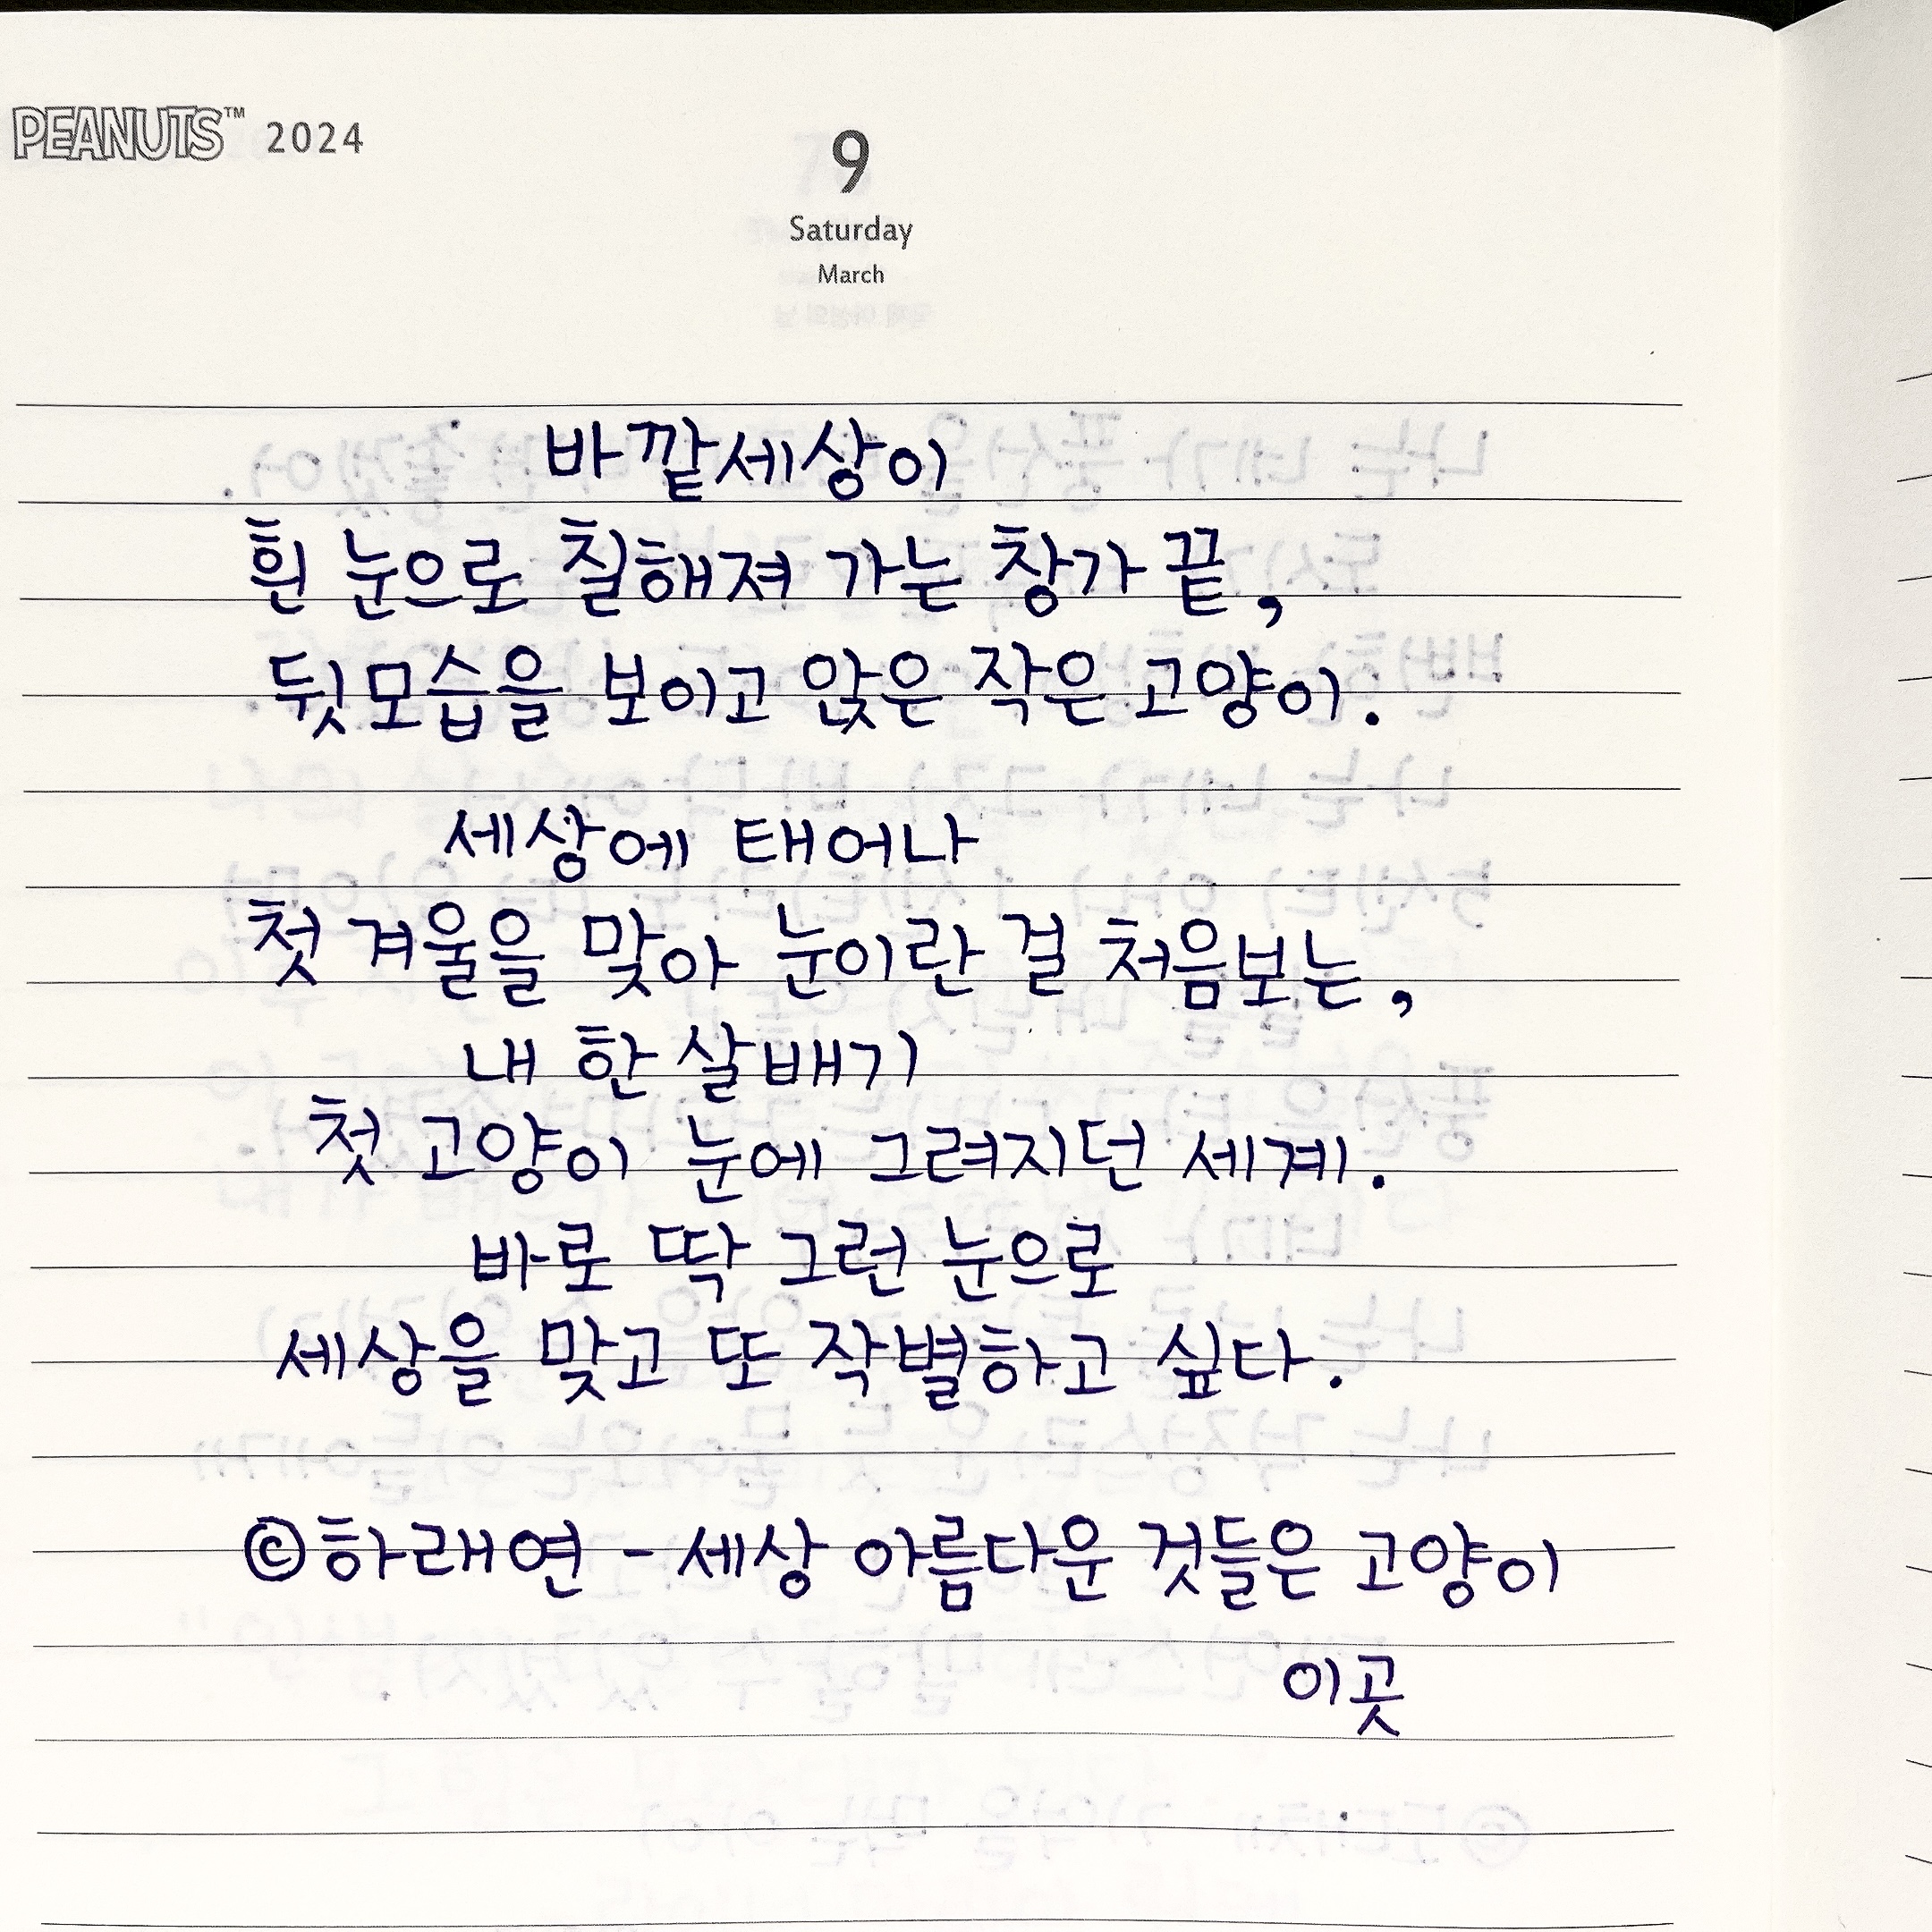 PEANUTS™ 2024
9
Saturday
March
바깥세상이
흰 눈으로 칠해져 가는 창가 끝,
뒷모습을 보이고 앉은 작은 고양이.
세상에 태어나
첫 겨울을 맞아 눈이란 걸 처음보는,
내 한 살배기
첫 고양이 눈에 그려지던 세계.
바로 딱 그런 눈으로
세상을 맞고 또 작별하고 싶다.
©하래연 - 세상 아름다운 것들은 고양이
이곳